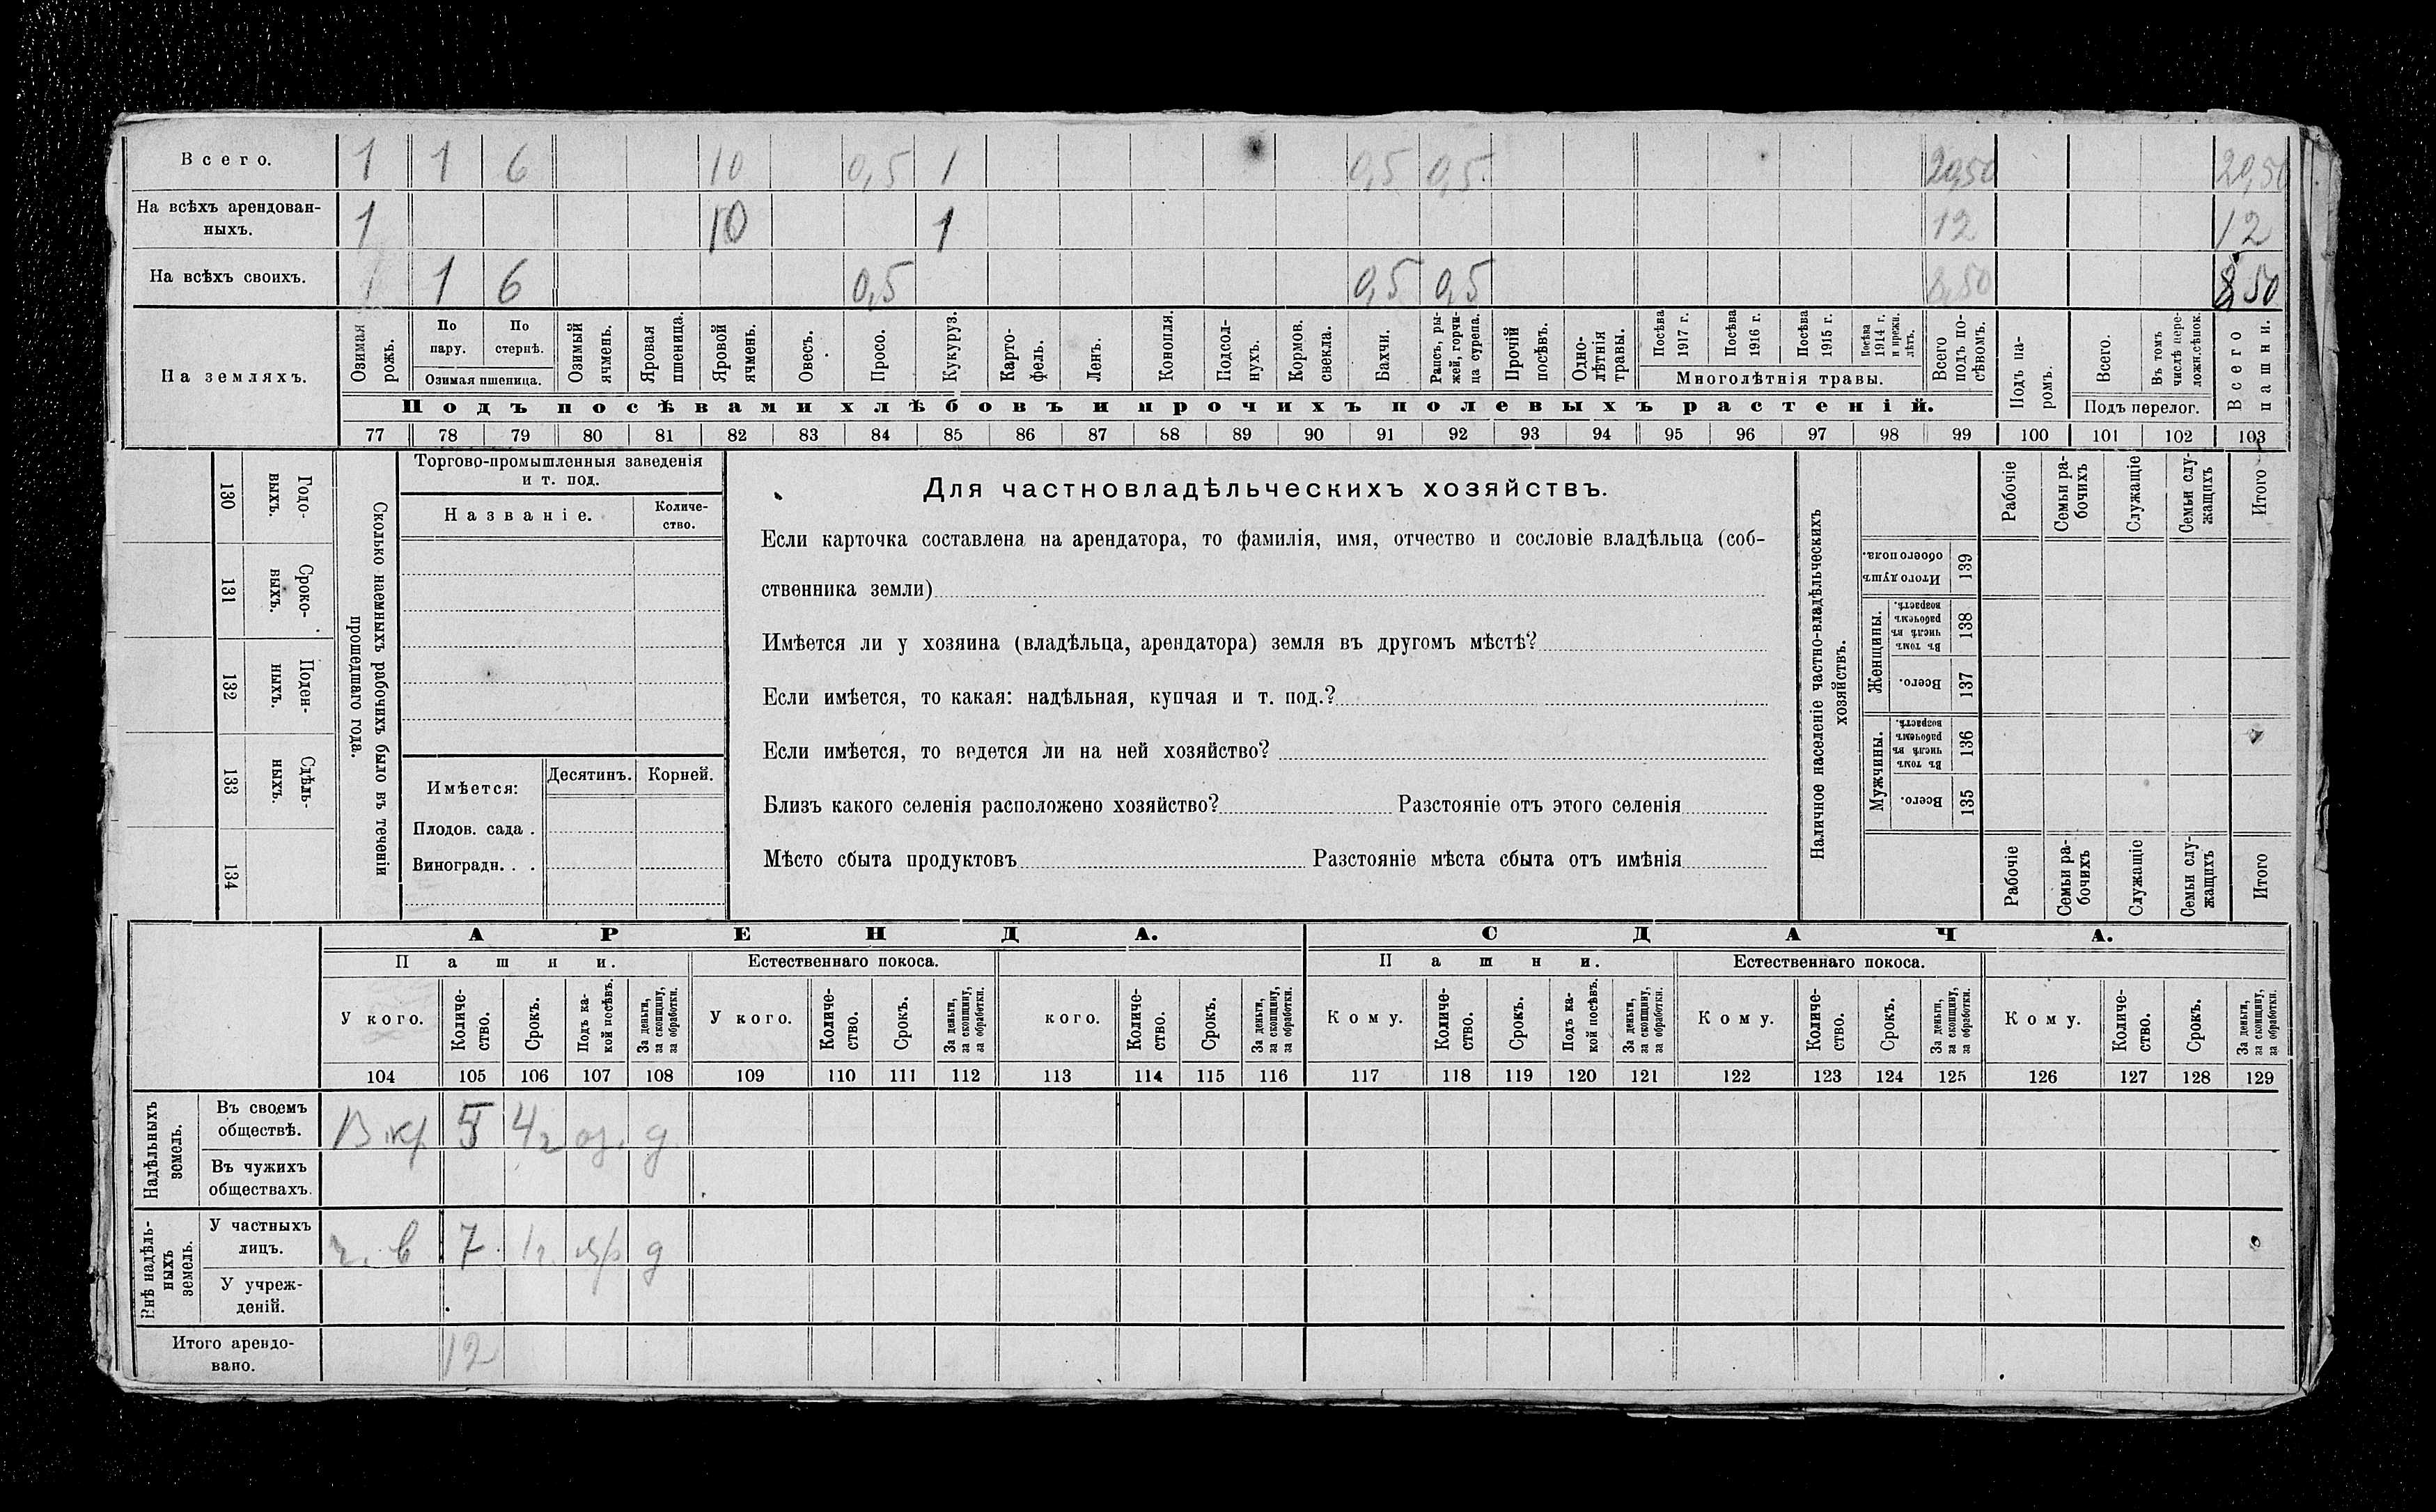 Всего. 1 1 6 10 0,5 1 0,5 0,5 20,50 20,50
На всѣхъ арендован-
ныхъ. 1 10 1 12 12
На всѣхъ своихъ. 1 6 0,5 0,5 0,5 8,50 8,50
На земляхъ.
Озимая
рожь.
По
пару.
По
стернѣ.
Озимая пшеница.
Озимый
ячмень.
Яровая
пшеница.
Яровой
ячмень.
Овесъ.
Просо.
Кукуруз.
Карто-
фель.
Ленъ.
Конопля.
Подсол-
нухъ.
Кормов.
свекла.
Бахчи.
Рапсъ, ры-
жей, горчи-
ца сурепа.
Прочій
посѣвъ.
Одно-
лѣтнія
травы.
Посѣва
1917 г.
Посѣва
1916 г.
Посѣва
1915 г.
Посѣва
1914 г.
и прежн.
лѣтъ.
Многолѣтнія травы.
Всего
подъ по-
сѣвомъ.
Подъ па-
ромъ.
Всего.
Въ томъ
числѣ пере-
ложн.сѣнок.
Подъ перелог.
Всего
пашни.
Подъ посѣвами хлѣбовъ и прочихъ полевыхъ растеній.
77 78 79 80 81 82 83 84 85 86 87 88 89 90 91 92 93 94 95 96 97 98 99 100 101 102 103
130 Годо-
выхъ.
131 Сроко-
выхъ.
132 Поден-
ныхъ.
133 Сдѣль-
ныхъ.
134
Сколько наемныхъ рабочихъ было въ теченіи
прошедшаго года.
Торгово-промышленныя заведенія
и т. под.
Названіе.
Количе-
ство.
Имѣется:
Десятинъ.
Корней.
Плодов. сада .
Виноградн. . .
Для частновладѣльческихъ хозяйствъ.
Если карточка составлена на арендатора, то фамилія, имя, отчество и сословіе владѣльца (соб-
ственника земли)
Имѣется ли у хозяина (владѣльца, арендатора) земля въ другомъ мѣстѣ?
Если имѣется, то какая: надѣльная, купчая и т. под.?
Если имѣется, то ведется ли на ней хозяйство?
Близъ какого селенія расположено хозяйство? Разстояніе отъ этого селенія
Мѣсто сбыта продуктовъ Разстояніе мѣста сбыта отъ имѣнія
Наличное населеніе частно-владѣльческихъ
хозяйствъ.
Рабочіе
Семьи ра-
бочихъ
Служащіе
Семьи слу-
жащихъ
Итого
Итого душъ
обоего пола.
139
Женщины.
Въ томъ
числѣ въ
рабочемъ
возрастѣ.
138
Всего.
137
Мужчины.
Въ томъ
числѣ въ
рабочемъ
возрастѣ.
136
Всего.
135
Рабочіе
Семьи ра-
бочихъ
Служащіе
Семьи слу-
жащихъ
Итого
АРЕНДА. СДАЧА.
Пашни. Естественнаго покоса. Пашни. Естественнаго покоса.
У кого.
Количе-
ство.
Срокъ.
Подъ ка-
кой посѣвъ.
За деньги,
за скопщину,
за обработки.
У кого.
Количе-
ство.
Срокъ.
За деньги,
за скопщину,
за обработки.
кого.
Количе-
ство.
Срокъ.
За деньги,
за скопщину,
за обработки.
Кому.
Количе-
ство.
Срокъ.
Подъ ка-
кой посѣвъ.
За деньги,
за скопщину,
за обработки.
Кому.
Количе-
ство.
Срокъ.
За деньги,
за скопщину,
за обработки.
Кому.
Количе-
ство.
Срокъ.
За деньги,
за скопщину,
за обработки.
104 105 106 107 108 109 110 111 112 113 114 115 116 117 118 119 120 121 122 123 124 125 126 127 128 129
Надѣльныхъ
земель.
Въ своемъ
обществѣ. 5 4 г оз. д
Въ чужихъ
обществахъ.
Внѣ надѣль-
ныхъ
земель.
У частныхъ
лицъ. ч. в 7 1 г. яр д
У учреж-
деній.
Итого арендо-
вано. 12